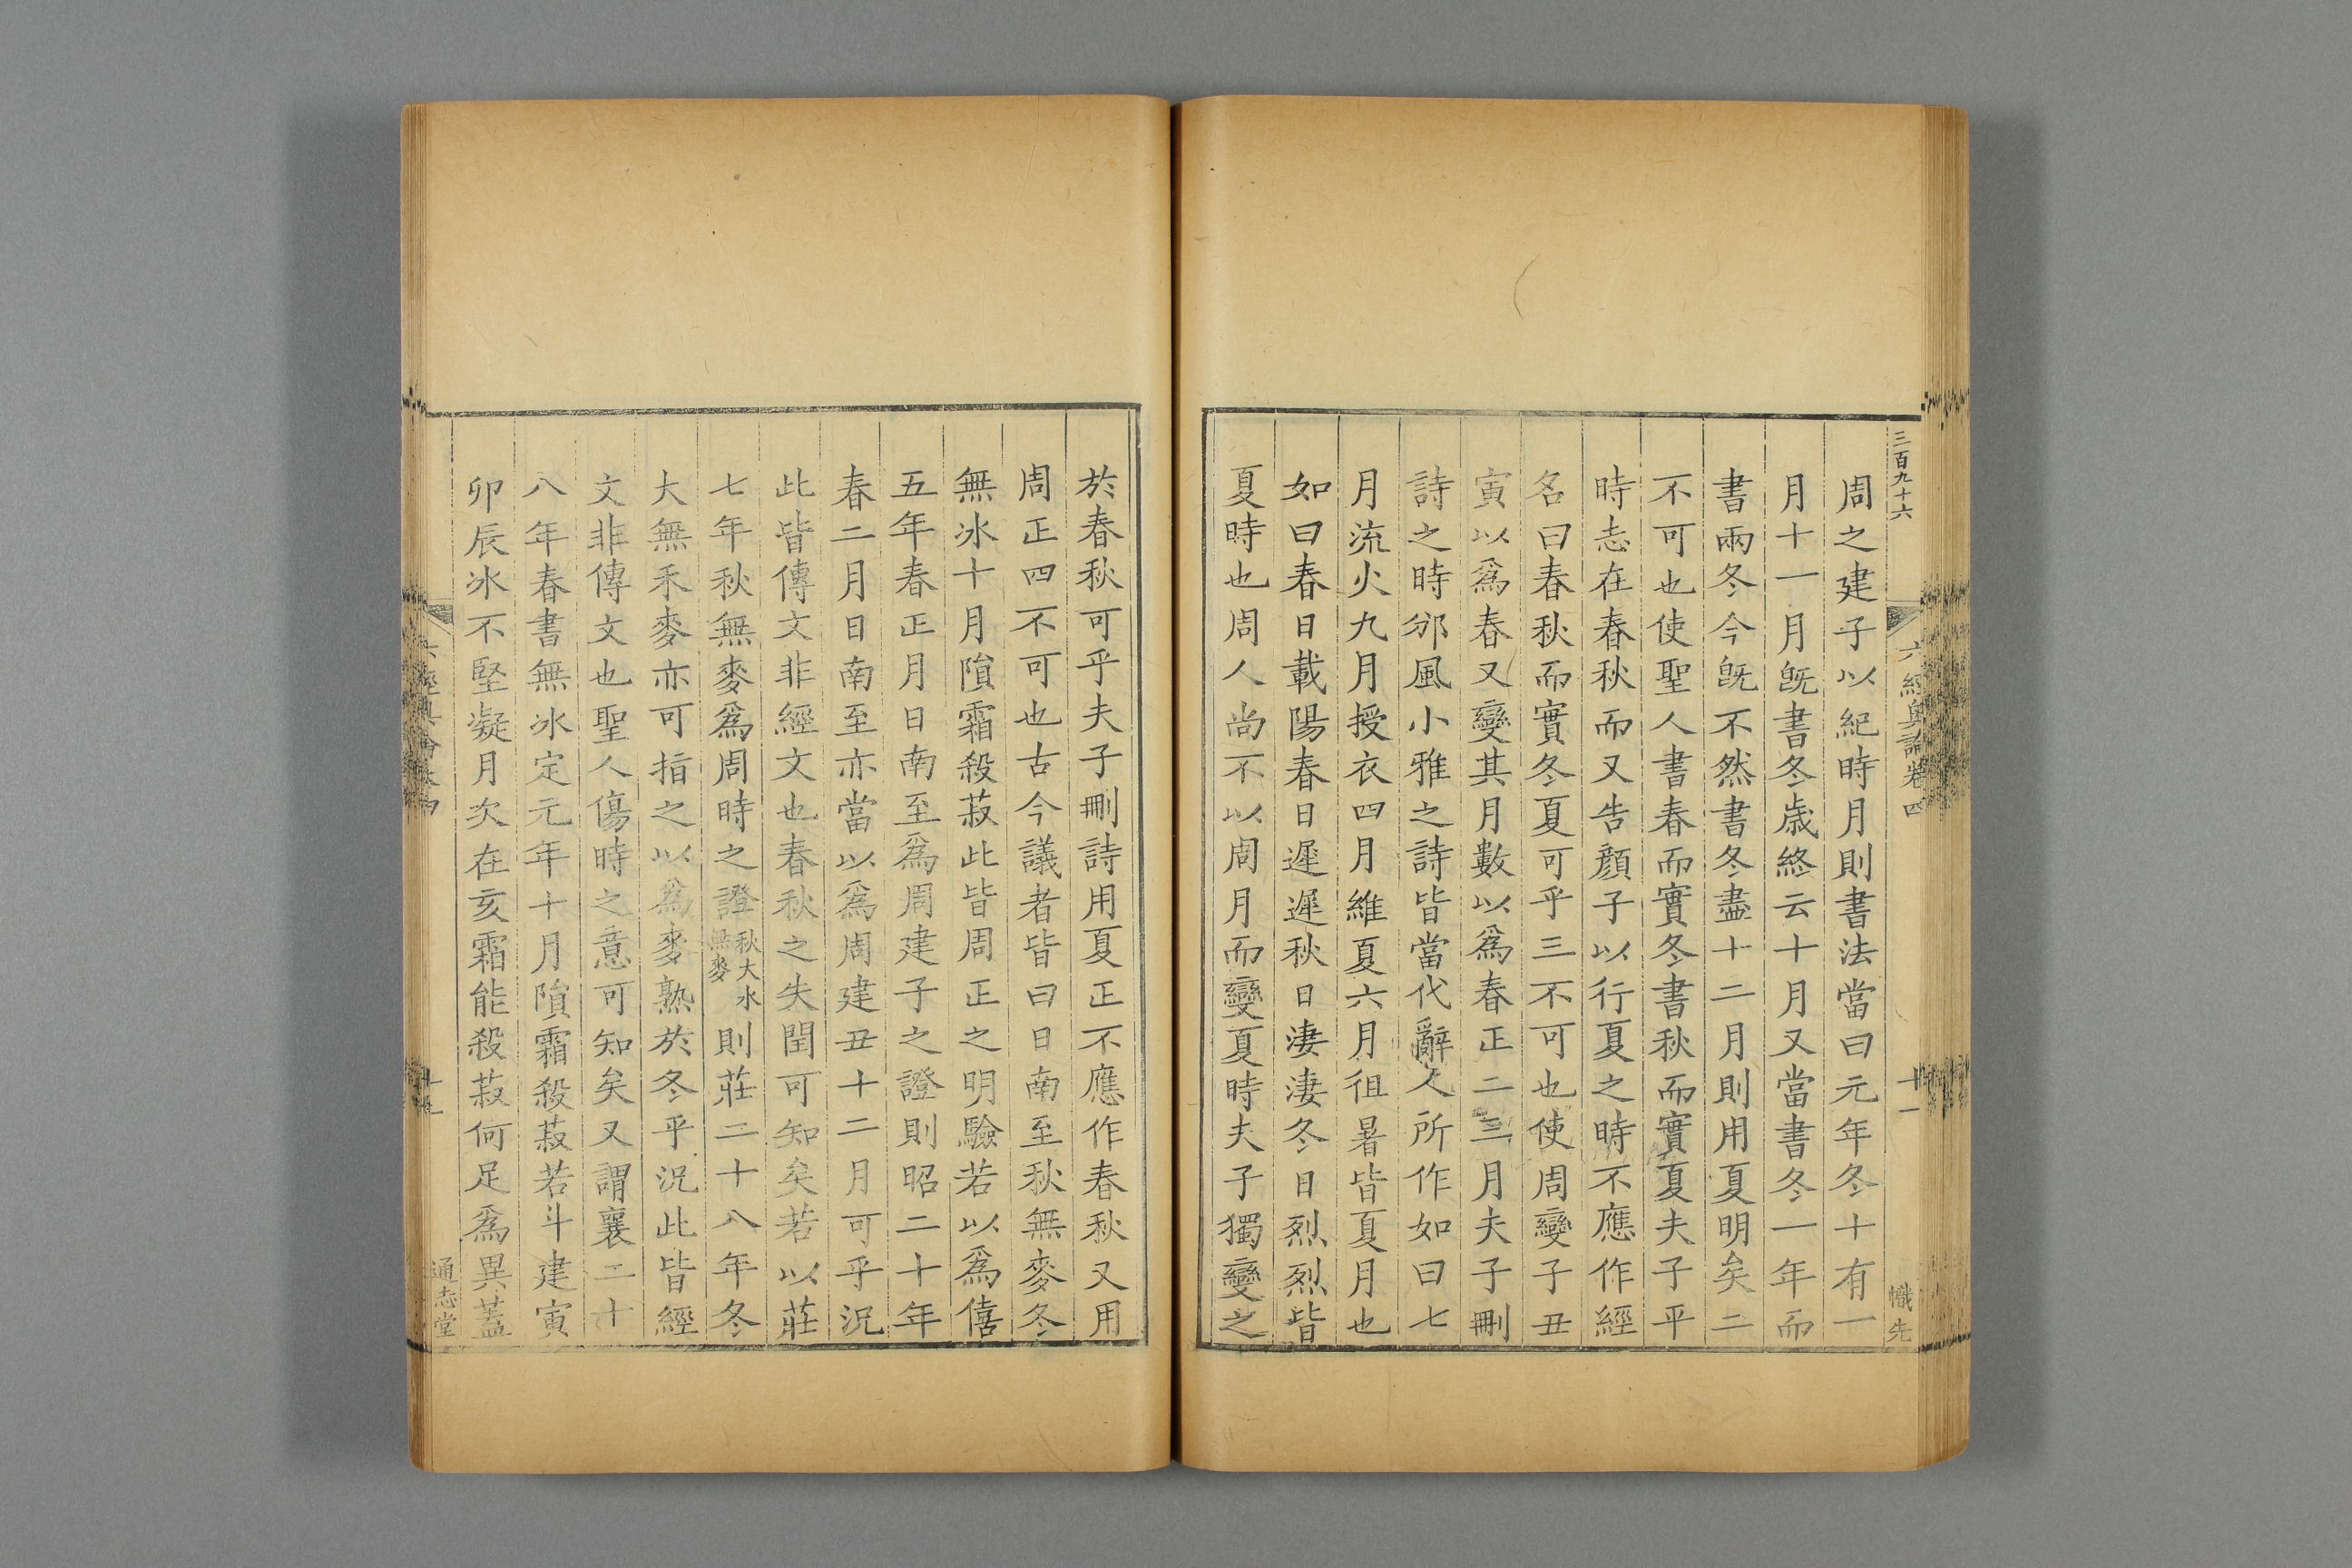 三百九十六
六經奥論卷四
十一
幟先
周之建子以紀時月則書法當曰元年冬十有一
月十一月旣書冬歳終云十月又當書冬一年而
書兩冬今旣不然書冬盡十二月則用夏明矣二
不可也使聖人書春而實冬書秋而實夏夫子平
時志在春秋而又告顔子以行夏之時不應作經
名曰春秋而實冬夏可乎三不可也使周變子丑
寅以爲春又變其月數以爲春正二三月夫子刪
詩之時邠風小雅之詩皆當代辭人所作如曰七
月流火九月授衣四月維夏六月徂暑皆夏月也
如曰春日載陽春日遲遲秋日淒淒冬日烈烈皆
夏時也周人尚不以周月而變夏時夫子獨變之
於春秋可乎夫子刪詩用夏正不應作春秋又用
周正四不可也古今議者皆曰日南至秋無麥冬
無冰十月隕霜殺菽此皆周正之明驗若以爲僖
五年春正月日南至爲周建子之證則昭二十年
春二月日南至亦當以爲周建丑十二月可乎況
此皆傳文非經文也春秋之失閏可知矣若以莊
七年秋無麥爲周時之證秋大水無麥則莊二十八年冬
大無禾麥亦可指之以爲麥熟於冬乎況此皆經
文非傳文也聖人傷時之意可知矣又謂襄二十
八年春書無冰定元年十月隕霜殺菽若斗建寅
卯辰冰不堅凝月次在亥霜能殺菽何足爲異蓋
通志堂